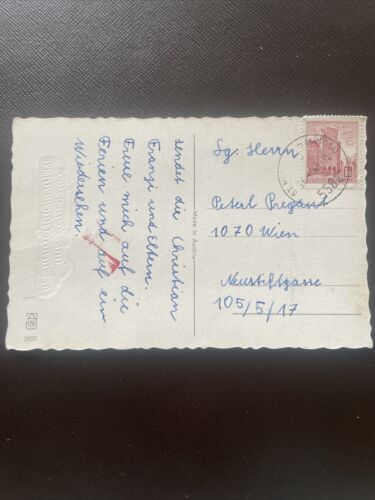 sendet dir Christian
Franzi und Eltern.
Freue mich auf die
Ferien und auf ein
Wiedersehen!
Made in Austria
Sg. Herrn
Peterl Pregant
1070 Wien
Neustiftgasse
105/5/17
558
2620